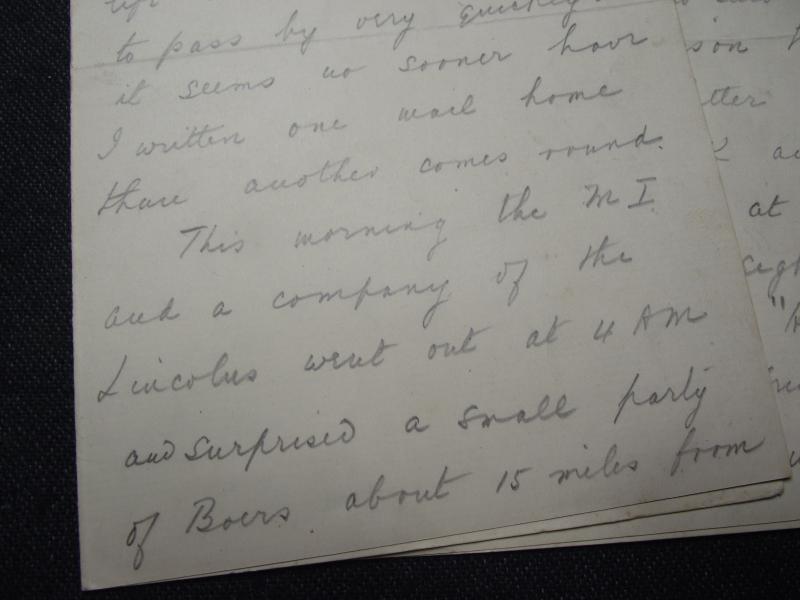 to pass by very quickly
it seems no sooner have
I written one mail home
than another comes round.
This morning the M I
and a company of the
Lincolns went out at 4 AM
and surprised a small party
of Boers about 15 miles from
son
tter
at